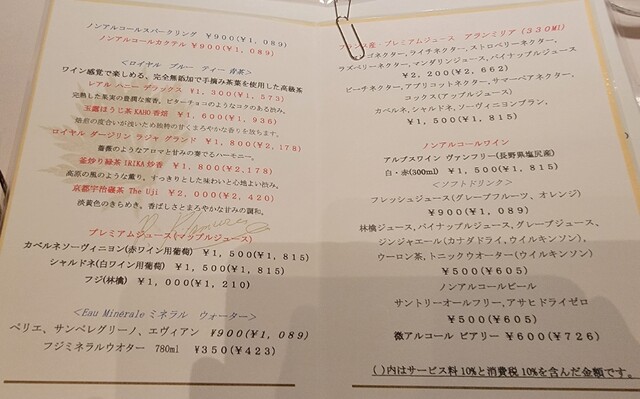 ノンアルコールスパークリング ¥900(¥1,089)
ノンアルコールカクテル ¥900(¥1,089)
<ロイヤル ブルー ティー 青茶>
ワイン感覚で楽しめる、完全無添加で手摘み茶葉を使用した高級茶
レアル ハニー デラックス ¥1,300(¥1,573)
完熟した果実の豊潤な蜜香。ビターチョコのようなコクのある渋み。
玉露ほうじ茶 KAHO香焙 ¥1,600(¥1,936)
焙煎の度合いが浅いため独特の甘くまろやかな香りを放ちます。
ロイヤル ダージリン ラジャ グランド ¥1,800(¥2,178)
薔薇のようなアロマと甘みの奏でるハーモニー。
釜炒り緑茶 IRIKA炒香 ¥1,800(¥2,178)
高原の風のような薫り。すっきりとした味わいと心地よい渋み。
京都宇治碾茶 The Uji ¥2,000(¥2,420)
淡黄色のきらめき。香ばしさとまろやかな甘みの調和。
プレミアムジュース(マップルジュース)
カベルネソーヴィニヨン(赤ワイン用葡萄) ¥1,500(¥1,815)
シャルドネ(白ワイン用葡萄) ¥1,500(¥1,815)
フジ(林檎) ¥1,000(¥1,210)
<Eau Minérale ミネラル ウォーター>
ペリエ、サンペレグリーノ、エヴィアン ¥900(¥1,089)
フジミネラルウオター 780ml ¥350(¥423)
フランス産・プレミアムジュース アランミリア (330Ml)
ゴネクター,ライチネクター,ストロベリーネクター,
ラズベリーネクター,マンダリンジュース,パイナップルジュース
¥2,200(¥2,662)
ピーチネクター,アプリコットネクター,サマーペアネクター,
コックス(アップルジュース)
カベルネ,シャルドネ,ソーヴィニヨンブラン,
¥1,500(¥1,815)
ノンアルコールワイン
アルプスワイン ヴァンフリー(長野県塩尻産)
白・赤(300ml) ¥1,500(¥1,815)
<ソフトドリンク>
フレッシュジュース(グレープフルーツ、オレンジ)
¥900(¥1,089)
林檎ジュース,パイナップルジュース,グレープジュース、
ジンジャエール(カナダドライ,ウイルキンソン),
ウーロン茶,トニックウオーター(ウイルキンソン)
¥500(¥605)
ノンアルコールビール
サントリーオールフリー,アサヒドライゼロ
¥500(¥605)
微アルコール ビアリー ¥600(¥726)
( )内はサービス料10%と消費税10%を含んだ金額です。